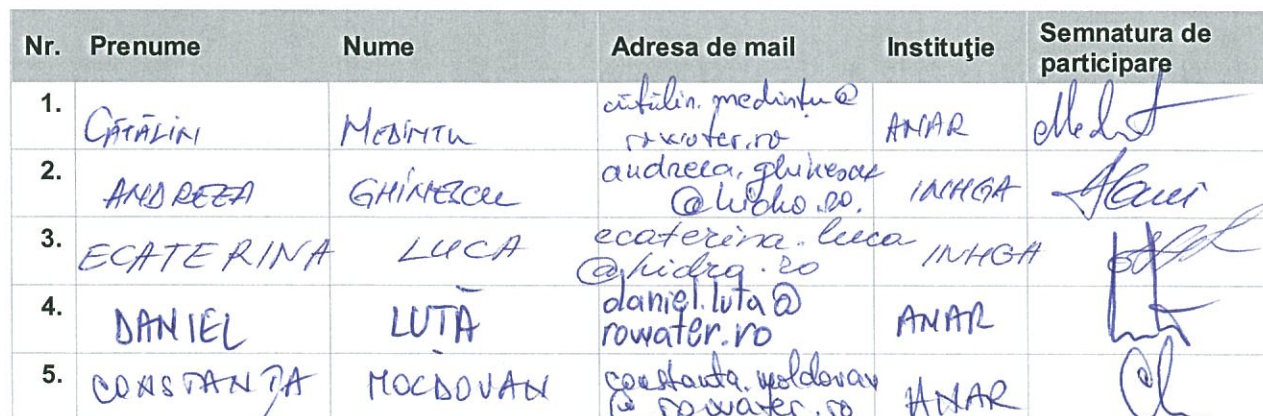 Nr. Prenume Nume Adresa de mail Instituţie Semnatura de participare
1. CĂTĂLIN MEDINTU cătălin.medintu@
rowater.ro ANAR
2. ANDREEA GHINESCU andreea.ghinescu
@hidro.ro. INHGA
3. ECATERINA LUCA ecaterina.luca
@hidro.ro INHGA
4. DANIEL LUȚĂ daniel.luta@
rowater.ro ANAR
5. CONSTANȚA MOLDOVAN constanta.moldovan
@ rowater.ro ANAR